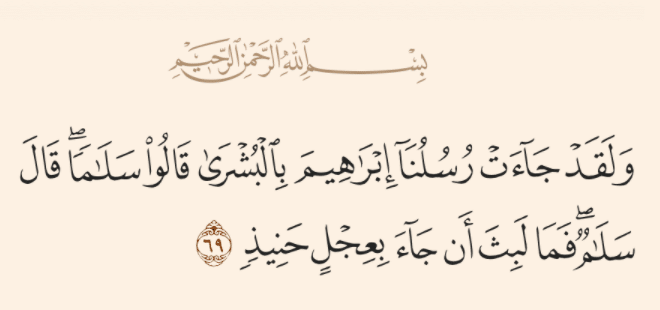 بِسْمِ ٱللَّهِ ٱلرَّحْمَٰنِ ٱلرَّحِيمِ
وَلَقَدْ جَآءَتْ رُسُلُنَآ إِبْرَٰهِيمَ بِٱلْبُشْرَىٰ قَالُوا۟ سَلَٰمًۭا ۖ قَالَ
سَلَٰمٌۭ ۖ فَمَا لَبِثَ أَن جَآءَ بِعِجْلٍ حَنِيذٍۢ ٦٩